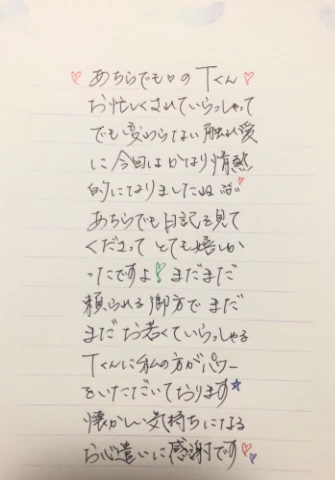 ♡あちらでも♡の Tくん♡
お忙しくされていらっしゃって
でも変わらない触れ愛
に今回はかなり情熱
的になりましたね
あちらでも日記を見て
くださって とても嬉しか
ったですよ! まだまだ
頼られる御方で まだ
まだお若くていらっしゃる
Tくんに私の方がパワー
をいただいております★
懐かしい気持ちになる
お心遣いに感謝です♡♡